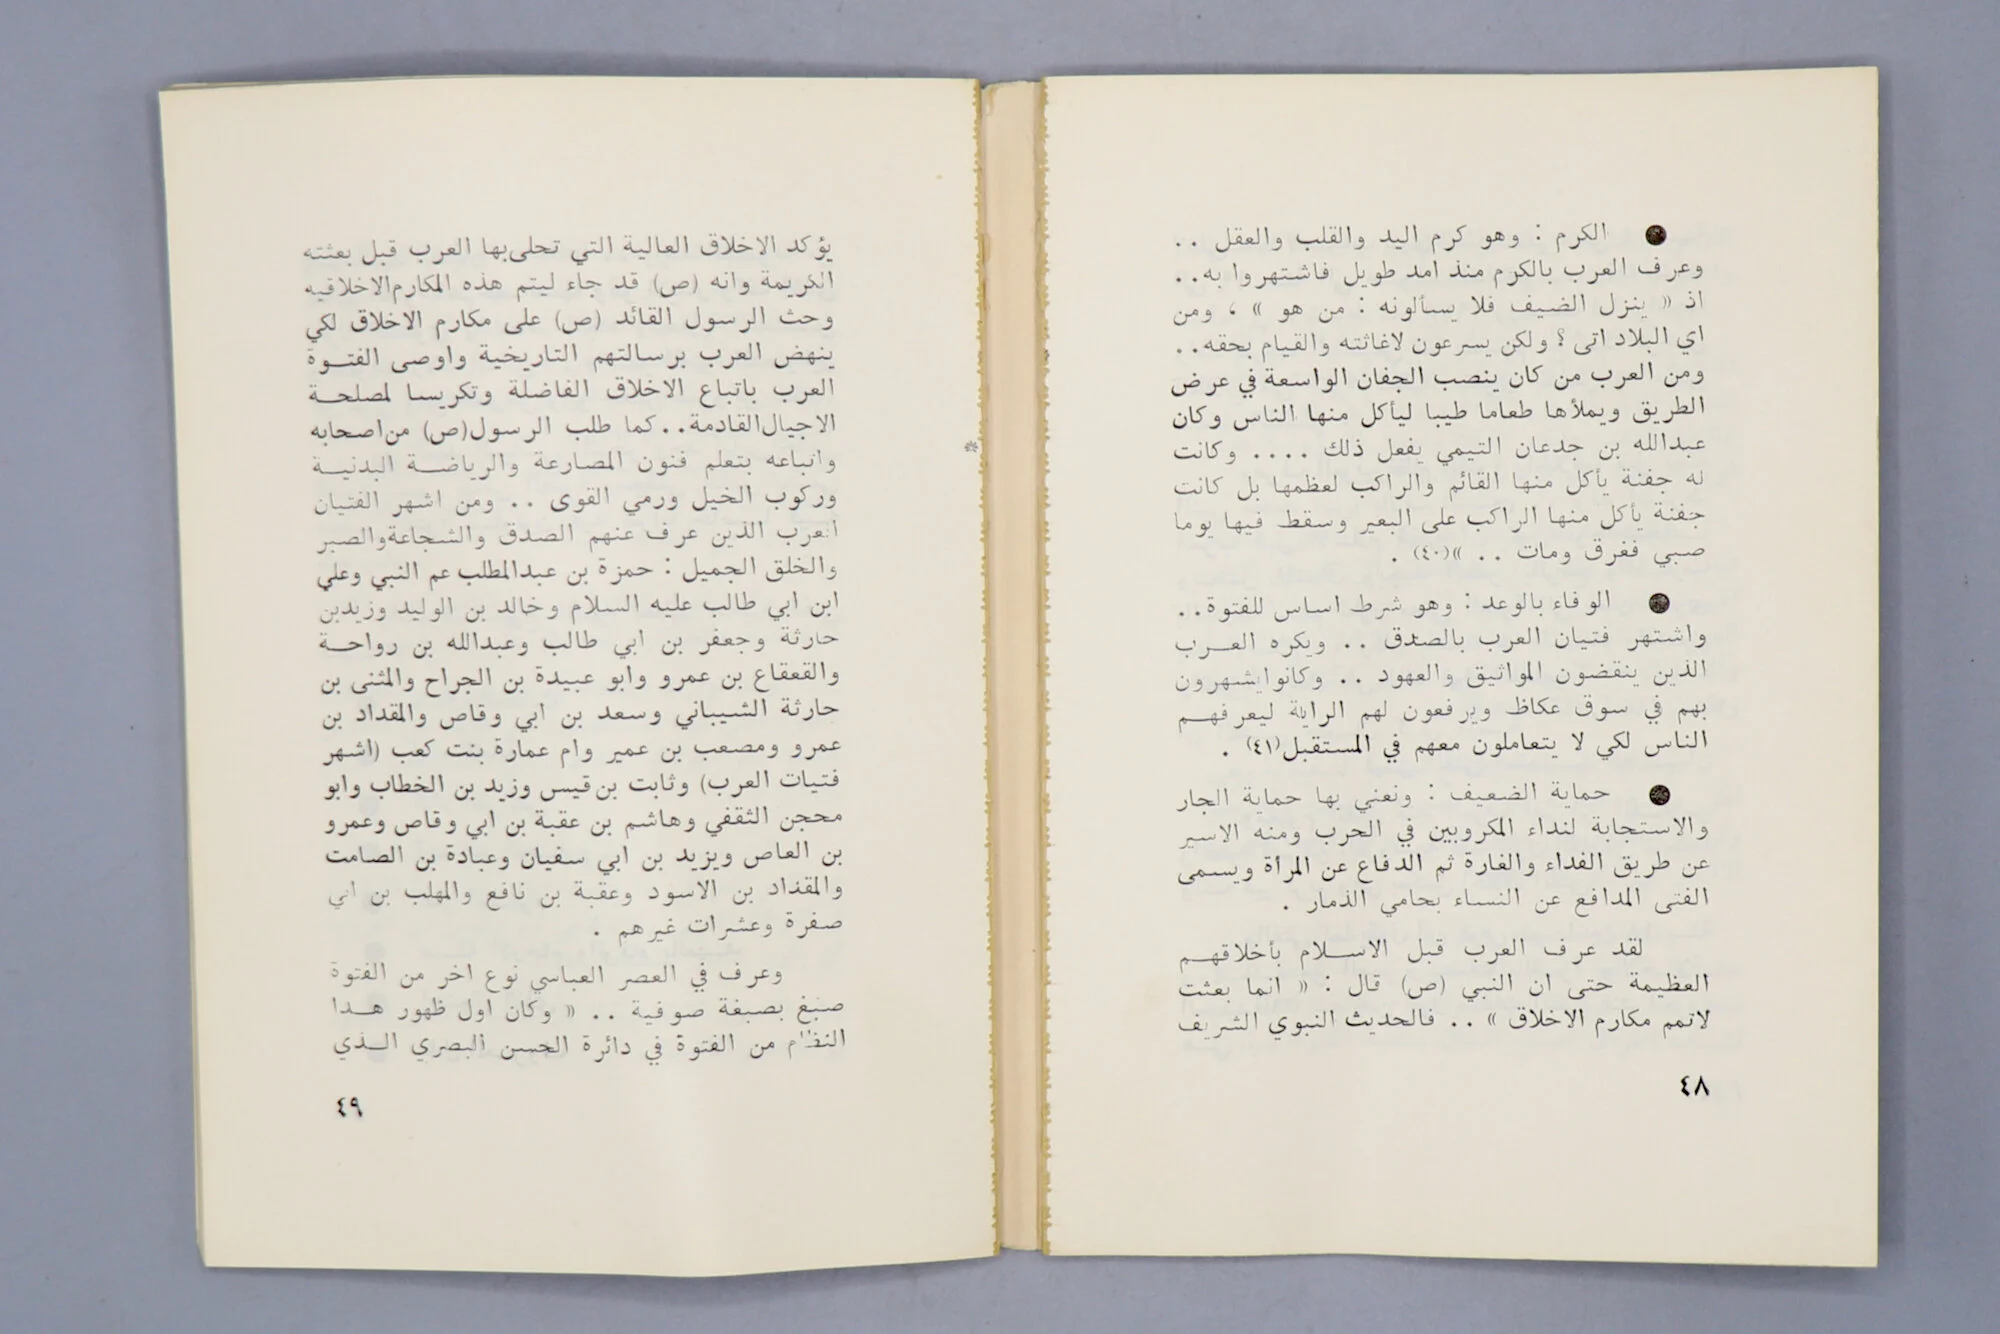 ● الكرم : وهو كرم اليد والقلب والعقل ..
وعرف العرب بالكرم منذ امد طويل فاشتهروا به..
اذ « ينزل الضيف فلا يسألونه : من هو » ، ومن
اي البلاد اتى ؟ ولكن يسرعون لاغاثته والقيام بحقه..
ومن العرب من كان ينصب الجفان الواسعة في عرض
الطريق ويملأها طعاما طيبا ليأكل منها الناس وكان
عبدالله بن جدعان التيمي يفعل ذلك .... وكانت
له جفنة يأكل منها القائم والراكب لعظمها بل كانت
جفنة يأكل منها الراكب على البعير وسقط فيها يوما
صبي ففرق ومات .. »(٤٠) .
● الوفاء بالوعد : وهو شرط اساس للفتوة..
واشتهر فتيان العرب بالصدق .. ويكره العرب
الذين ينقضون المواثيق والعهود .. وكانوايشهرون
بهم في سوق عكاظ ويرفعون لهم الراية ليعرفهم
الناس لكي لا يتعاملون معهم في المستقبل(٤١) .
● حماية الضعيف : ونعني بها حماية الجار
والاستجابة لنداء المكروبين في الحرب ومنه الاسير
عن طريق الفداء والغارة ثم الدفاع عن المرأة ويسمى
الفتى المدافع عن النساء بحامي الذمار .
لقد عرف العرب قبل الاسلام بأخلاقهم
العظيمة حتى ان النبي (ص) قال : « انما بعثت
لاتمم مكارم الاخلاق » .. فالحديث النبوي الشريف
٤٨
يؤكد الاخلاق العالية التي تحلى بها العرب قبل بعثته
الكريمة وانه (ص) قد جاء ليتم هذه المكارم الاخلاقيه
وحث الرسول القائد (ص) على مكارم الاخلاق لكي
ينهض العرب برسالتهم التاريخية واوصى الفتوة
العرب باتباع الاخلاق الفاضلة وتكريسا لمصلحة
الاجيال القادمة.. كما طلب الرسول(ص) من اصحابه
واتباعه بتعلم فنون المصارعة والرياضة البدنية
وركوب الخيل ورمي القوى .. ومن اشهر الفتيان
العرب الذين عرف عنهم الصدق والشجاعةوالصبر
والخلق الجميل : حمزة بن عبدالمطلب عم النبي وعلي
ابن ابي طالب عليه السلام وخالد بن الوليد وزيدبن
حارثة وجعفر بن ابي طالب وعبدالله بن رواحة
والقعقاع بن عمرو وابو عبيدة بن الجراح والمثنى بن
حارثة الشيباني وسعد بن ابي وقاص والمقداد بن
عمرو ومصعب بن عمير وام عمارة بنت كعب (اشهر
فتيات العرب) وثابت بن قيس وزيد بن الخطاب وابو
محجن الثقفي وهاشم بن عقبة بن ابي وقاص وعمرو
بن العاص ويزيد بن ابي سفيان وعبادة بن الصامت
والمقداد بن الاسود وعقبة بن نافع والمهلب بن ابي
صفرة وعشرات غيرهم .
وعرف في العصر العباسي نوع اخر من الفتوة
صبغ بصبغة صوفية .. « وكان اول ظهور هدا
النظام من الفتوة في دائرة الحسن البصري الذي
٤٩